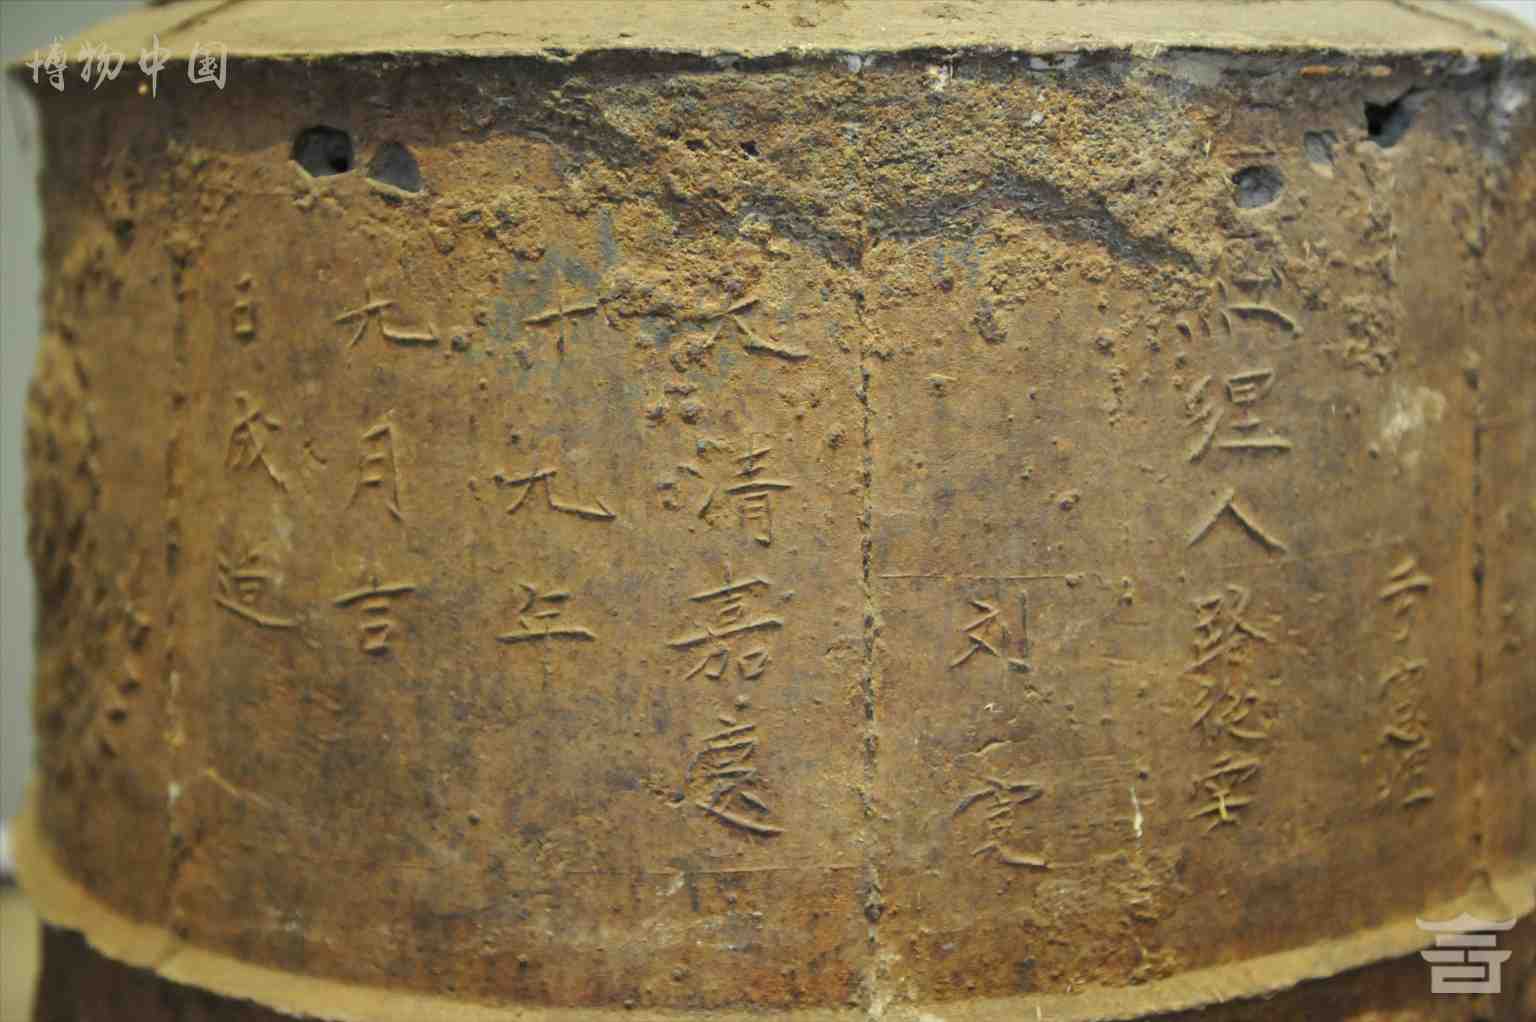 博物中国
经理人路從安
刘亮
大清嘉慶
十九年
九月吉
日成造